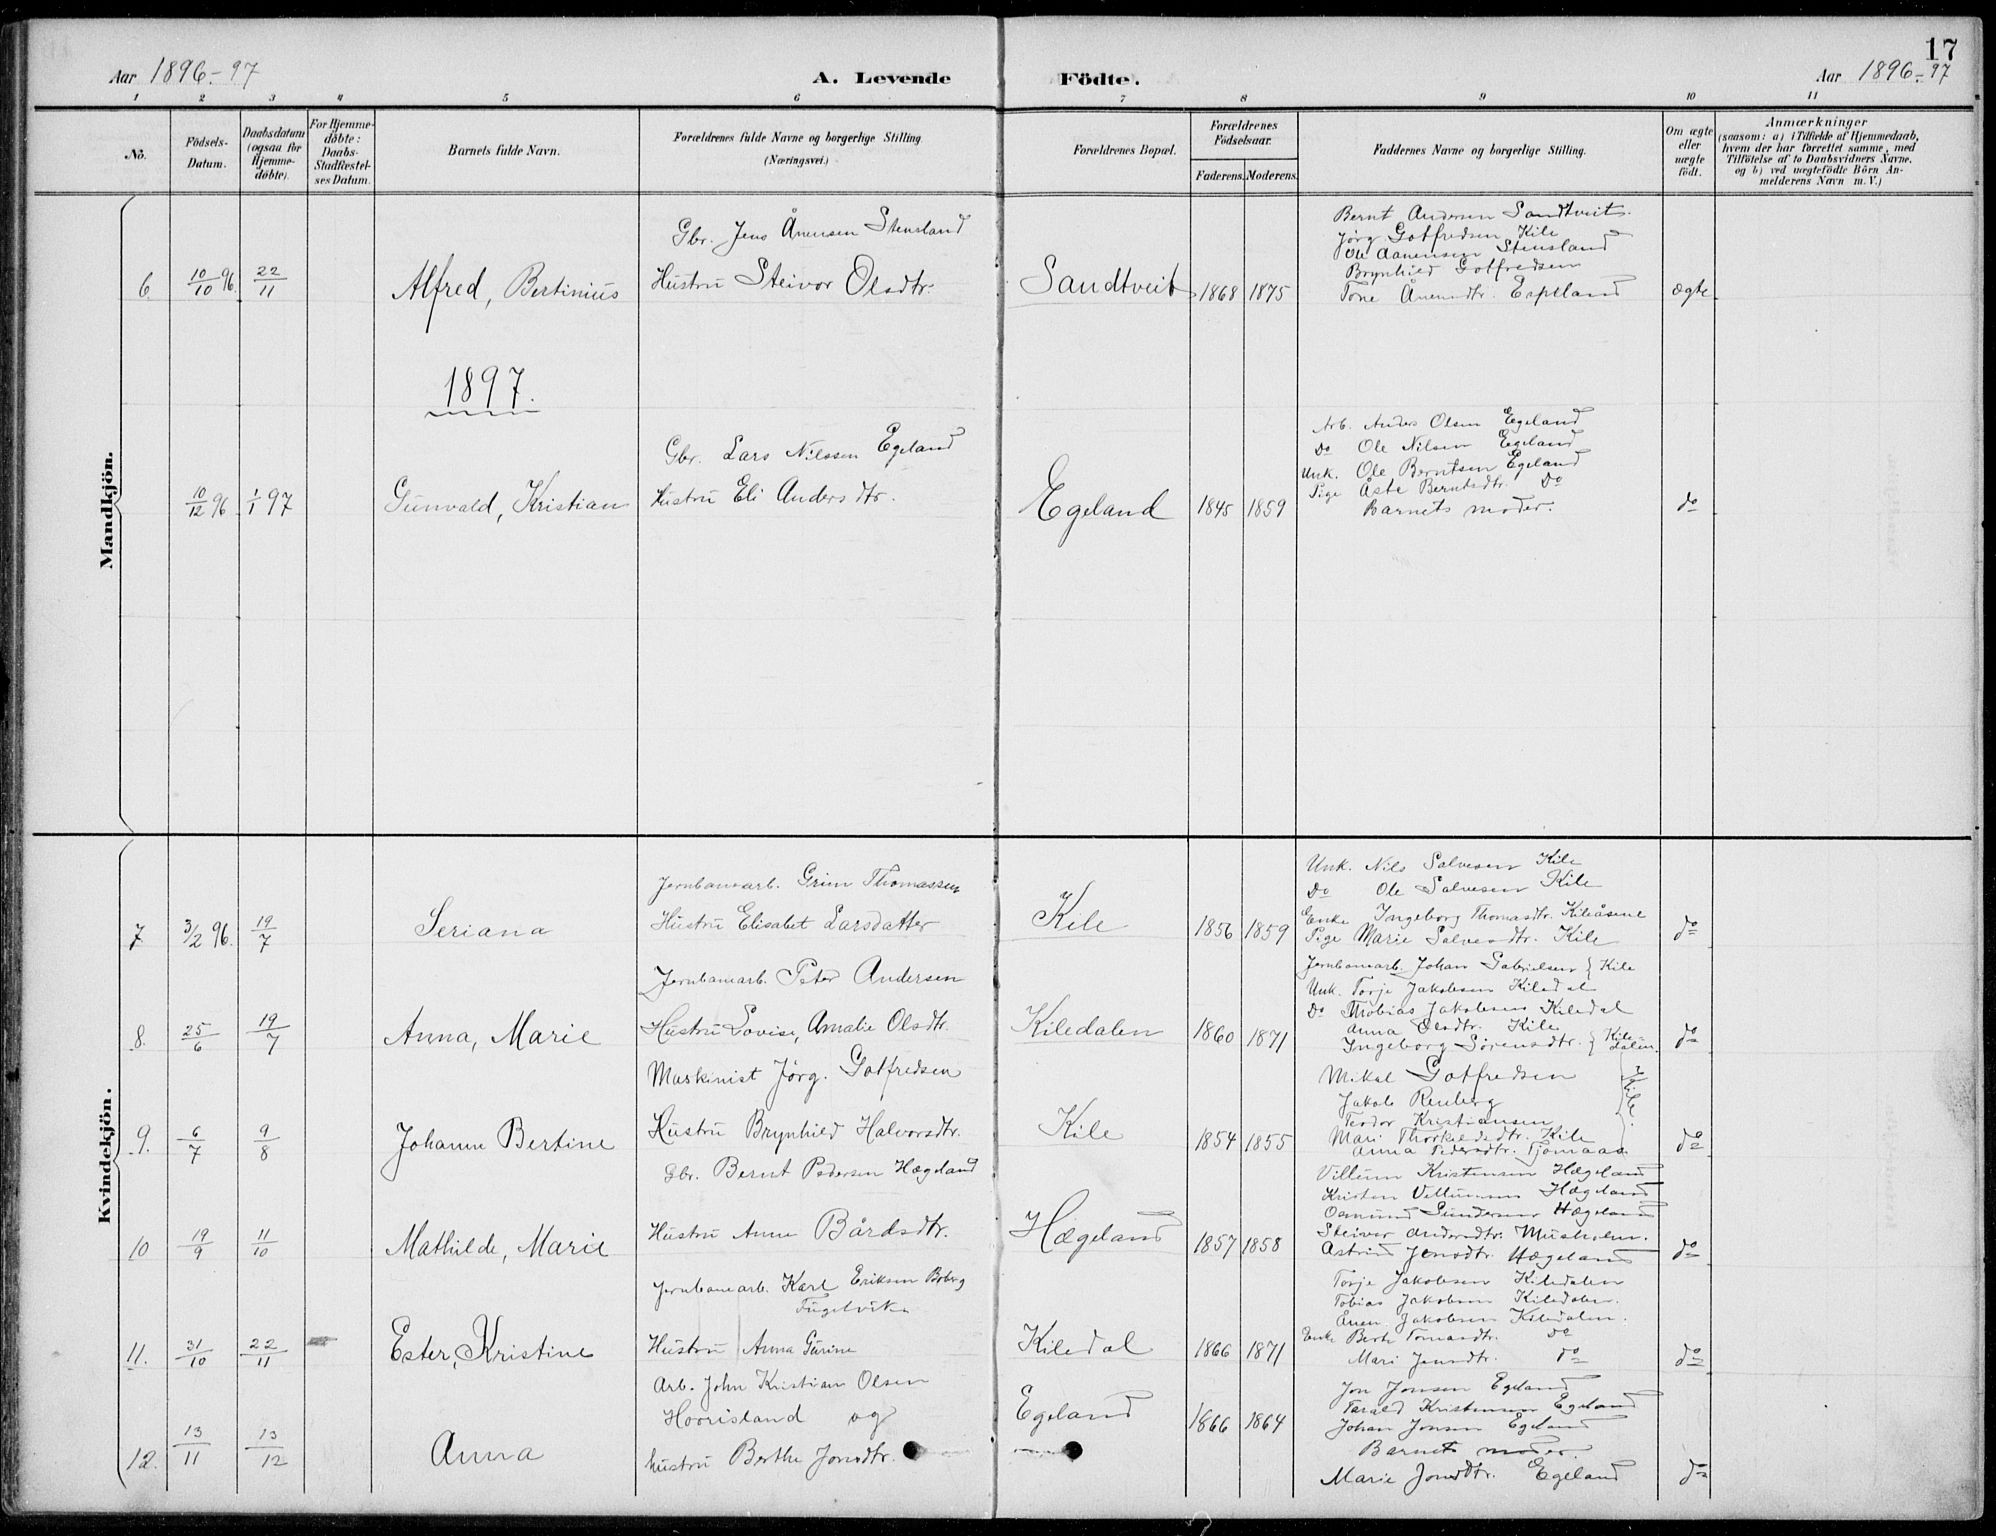 17
Aar 1896-97
A. Levende Födte.
Aar 1896-97
1 2 3 4 5 6 7 8 9 10 11
No.
Födsels-Datum.
Daabsdatum (ogsaa for Hjemme-döbte).
For Hjemme-döbte: Daabs-Stadfæstel-ses Datum.
Barnets fulde Navn.
Forældrenes fulde Navne og borgerlige Stilling (Næringsvei.)
Forældrenes Bopæl.
Forældrenes Födselsaar.
Faderens. Moderens.
Faddernes Navne og borgerlige Stilling.
Om ægte eller uægte födt.
Anmærkninger
(saasom: a) i Tilfælde af Hjemmedaab,
hvem der har forrettet samme, med
Tilföielse af to Daabsvidners Navne,
og b) ved uægtefödte Börn An-
melderens Navn m. V.)
Mandkjön.
6 10/10 96. 22/11
Alfred, Bertinius
Gbr. Jens Ånensen Stensland
Hustru Steivor Olsdtr.
Sandtveit 1868 1875
Bernt Andersen Sandtveit.
Jörg Gotfredsen Kile
Ole Aanensen Stensland
Brynhild Gotfredsen
Tone Ånensdtr.
ægte
1897.
10/12 96 1/1 97
Gunvald, Kristian
Gbr. Lars Nilssen Egeland
Hustru Eli Andersdtr.
Egeland 1845 1859
Arb. Anders Olsen Egeland
Do Ole Nilsen Egeland
Unk. Ole Berntsen Egeland
Pige Åste Berntsdtr. Do
Barnets moder.
do
Kvindekjön.
7 3/2 96. 19/7
Seriana
Jernbanearb. Grim Thomassen
Hustru Elisabet Larsdatter
Kile 1856 1859
Unk. Nils Salvesen Kile
Do Ole Salvesen Kile
Enke Ingeborg Thomasdtr. Kileåsene
Pige Marie Salvesdtr. Kile
do
8. 25/6 19/7
Anna, Marie
Jernbanearb. Peter Andersen
Hustru Lovise, Amalie Olsdtr.
Kiledalen 1860 1871
Jernbanearb. Johan Gabrielsen } Kile
Unk. Torje Jakobsen Kiledal
Do Thobias Jakobsen Kiledal
Anna Olsdtr. Kile
Ingeborg Sörensdtr. } Kiledalen.
do
9. 6/7 9/8
Johanne Bertine
Maskinist Jörg. Gotfredsen
Hustru Brynhild Halvorsdtr.
Kile 1854 1855
Mikal Gotfredsen
Jakob Renberg
Teodor Kristiansen
} Kile.
Mari Thorkildsdtr. Kile
Anna Pedersdtr.
do
10 19/9 11/10
Mathilde, Marie
Gbr. Bernt Pedersen Hægeland
Hustru Anne Bårdsdtr.
Hægeland 1857 1858
Villum Kristensen Hægeland
Kristen Villumsen Hægeland
Osmund Gundersen Hægeland
Steivor Andersdtr.
Astrid Jensdtr. Hægeland
do
11. 31/10 22/11
Ester, Kristine
Jernbanearb. Karl Eriksen Boberg
Fugelvik
Hustru Anna Gurine
Kiledal 1866 1871
Torje Jakobsen Kiledalen
Tobias Jakobsen Kiledalen.
Ånen Jakobsen Kiledalen.
Enke Berte Tomasdtr. Do
Mari Jensdtr. Do
do
12. 13/11 13/12
Anna
Arb. John Kristian Olsen
og
Hustru Berthe Jonsdtr.
Egeland 1866 1864
Jon Jonsen Egeland
Tarald Kristensen Egeland
Johan Jonsen Egeland
Barnets moder.
Marie Jonsdtr. Egeland
do